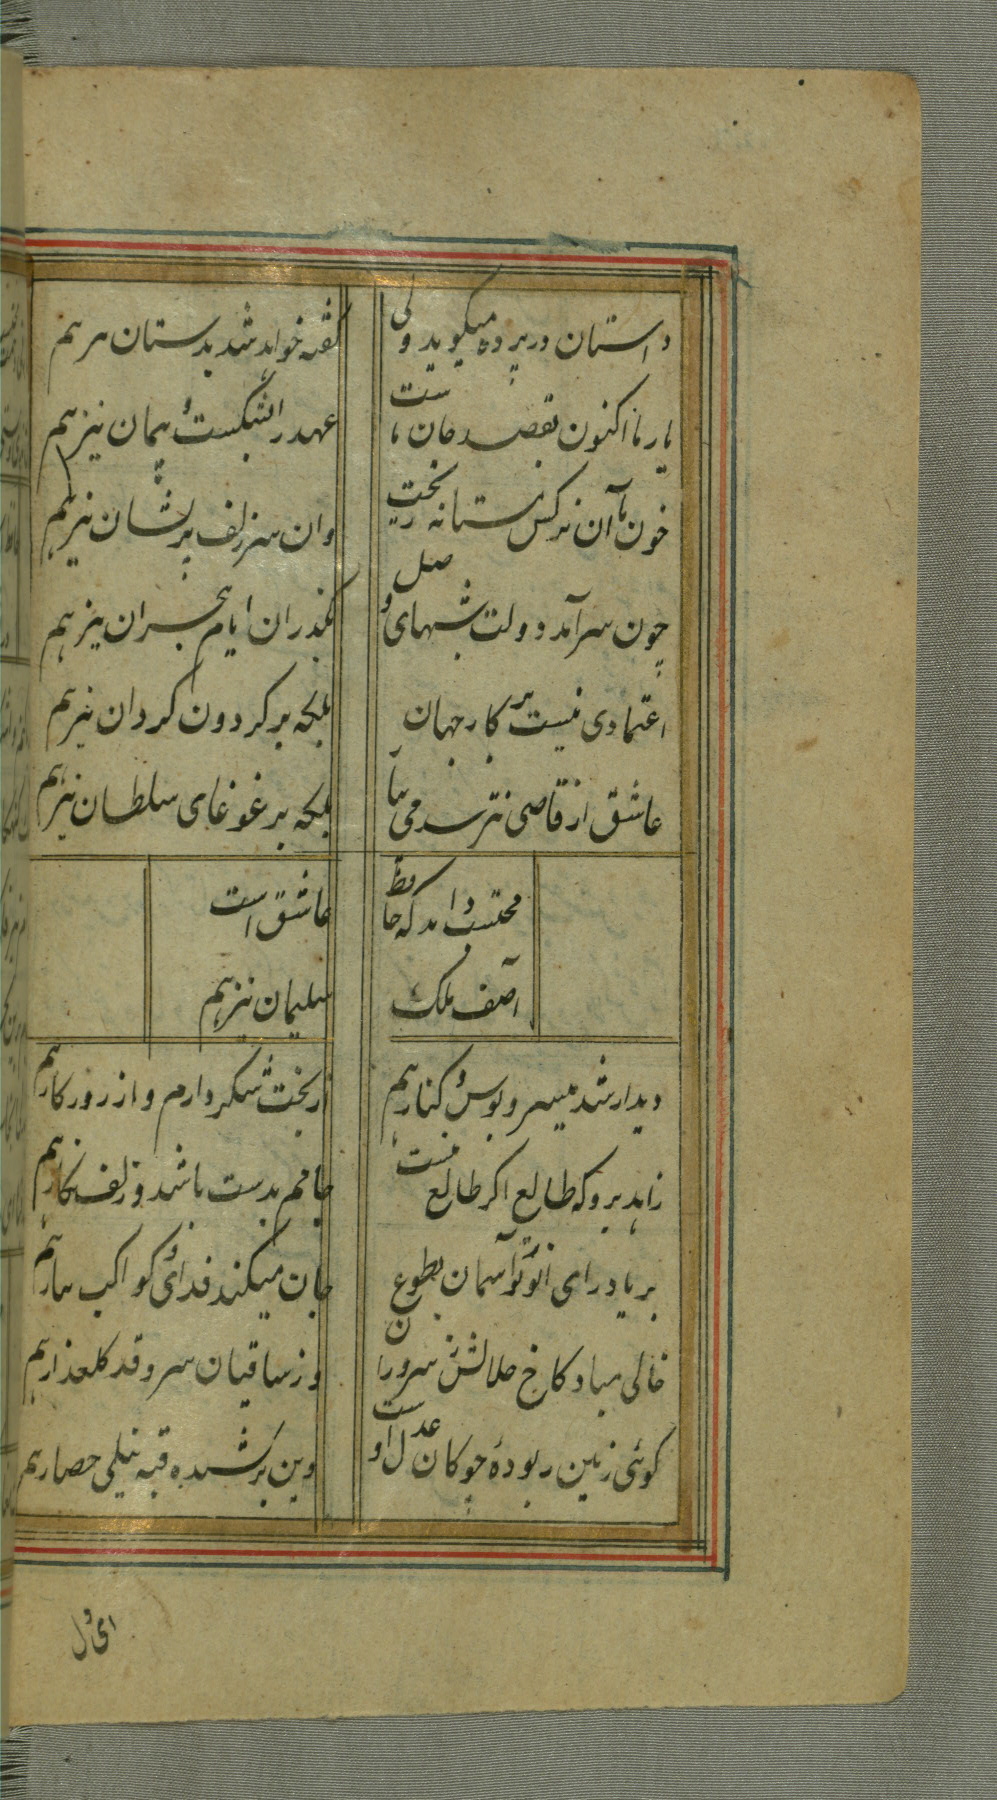 داستان در پرده میگوید ولی
گفته خواهد شد بدستان هر هم
یار ما اکنون بقصد جان ماست
عهد را بشکست و پیمان نیز هم
خون ما آن نرکس مستانه ریخت
وان سر زلف پریشان نیز هم
چون سر آمد دولت شبهای وصل
بگذران ایام هجران نیز هم
اعتمادی نیست بر کار جهان
بلکه بر کردون کردان نیز هم
عاشق از قاضی نترسد می بیار
بلکه بر غوغای سلطان نیز هم
محتسب داند که حافظ
عاشق است
و آصف ملک
سلیمان نیز هم
دیدار شد میسر و بوس و کنار هم
از بخت شکر دارم و از روزکار هم
زاهد برو که طالع اکر طالع منست
جامم بدست باشد و زلف نکار هم
بر یاد رای انور تو آسمان بطوع
جان میکند فدای و کواکب نثار هم
خالی مباد کاخ جلالش ز سروران
وز ساقیان سرو قد کلعذار هم
کوئی زمین ربودهٔ چوکان عدل اوست
وین بر کشیده قبه نیلی حصار هم
ای دل